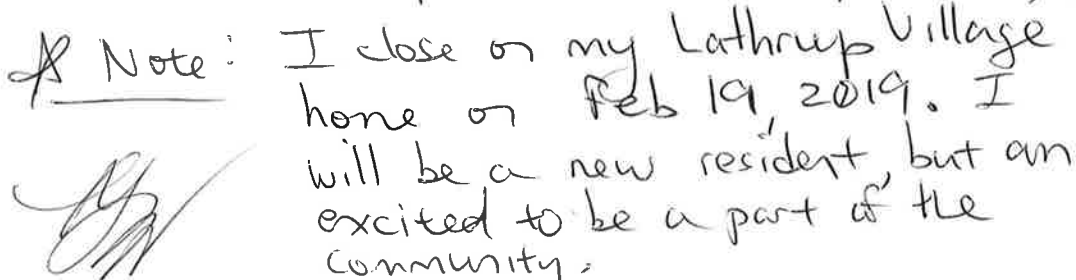 * Note: I close on my Lathrup Village
home on Feb 19, 2019. I
will be a new resident, but am
excited to be a part of the
community.